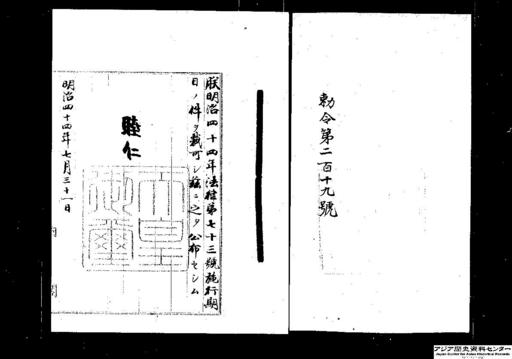 勅令第二百十九號
朕明治四十四年法律第七十三號施行期
日ノ件ヲ裁可シ茲ニ之ヲ公布セシム
睦仁
明治四十四年七月三十一日
アジア歴史資料センター
Japan Center for Asian Historical Records